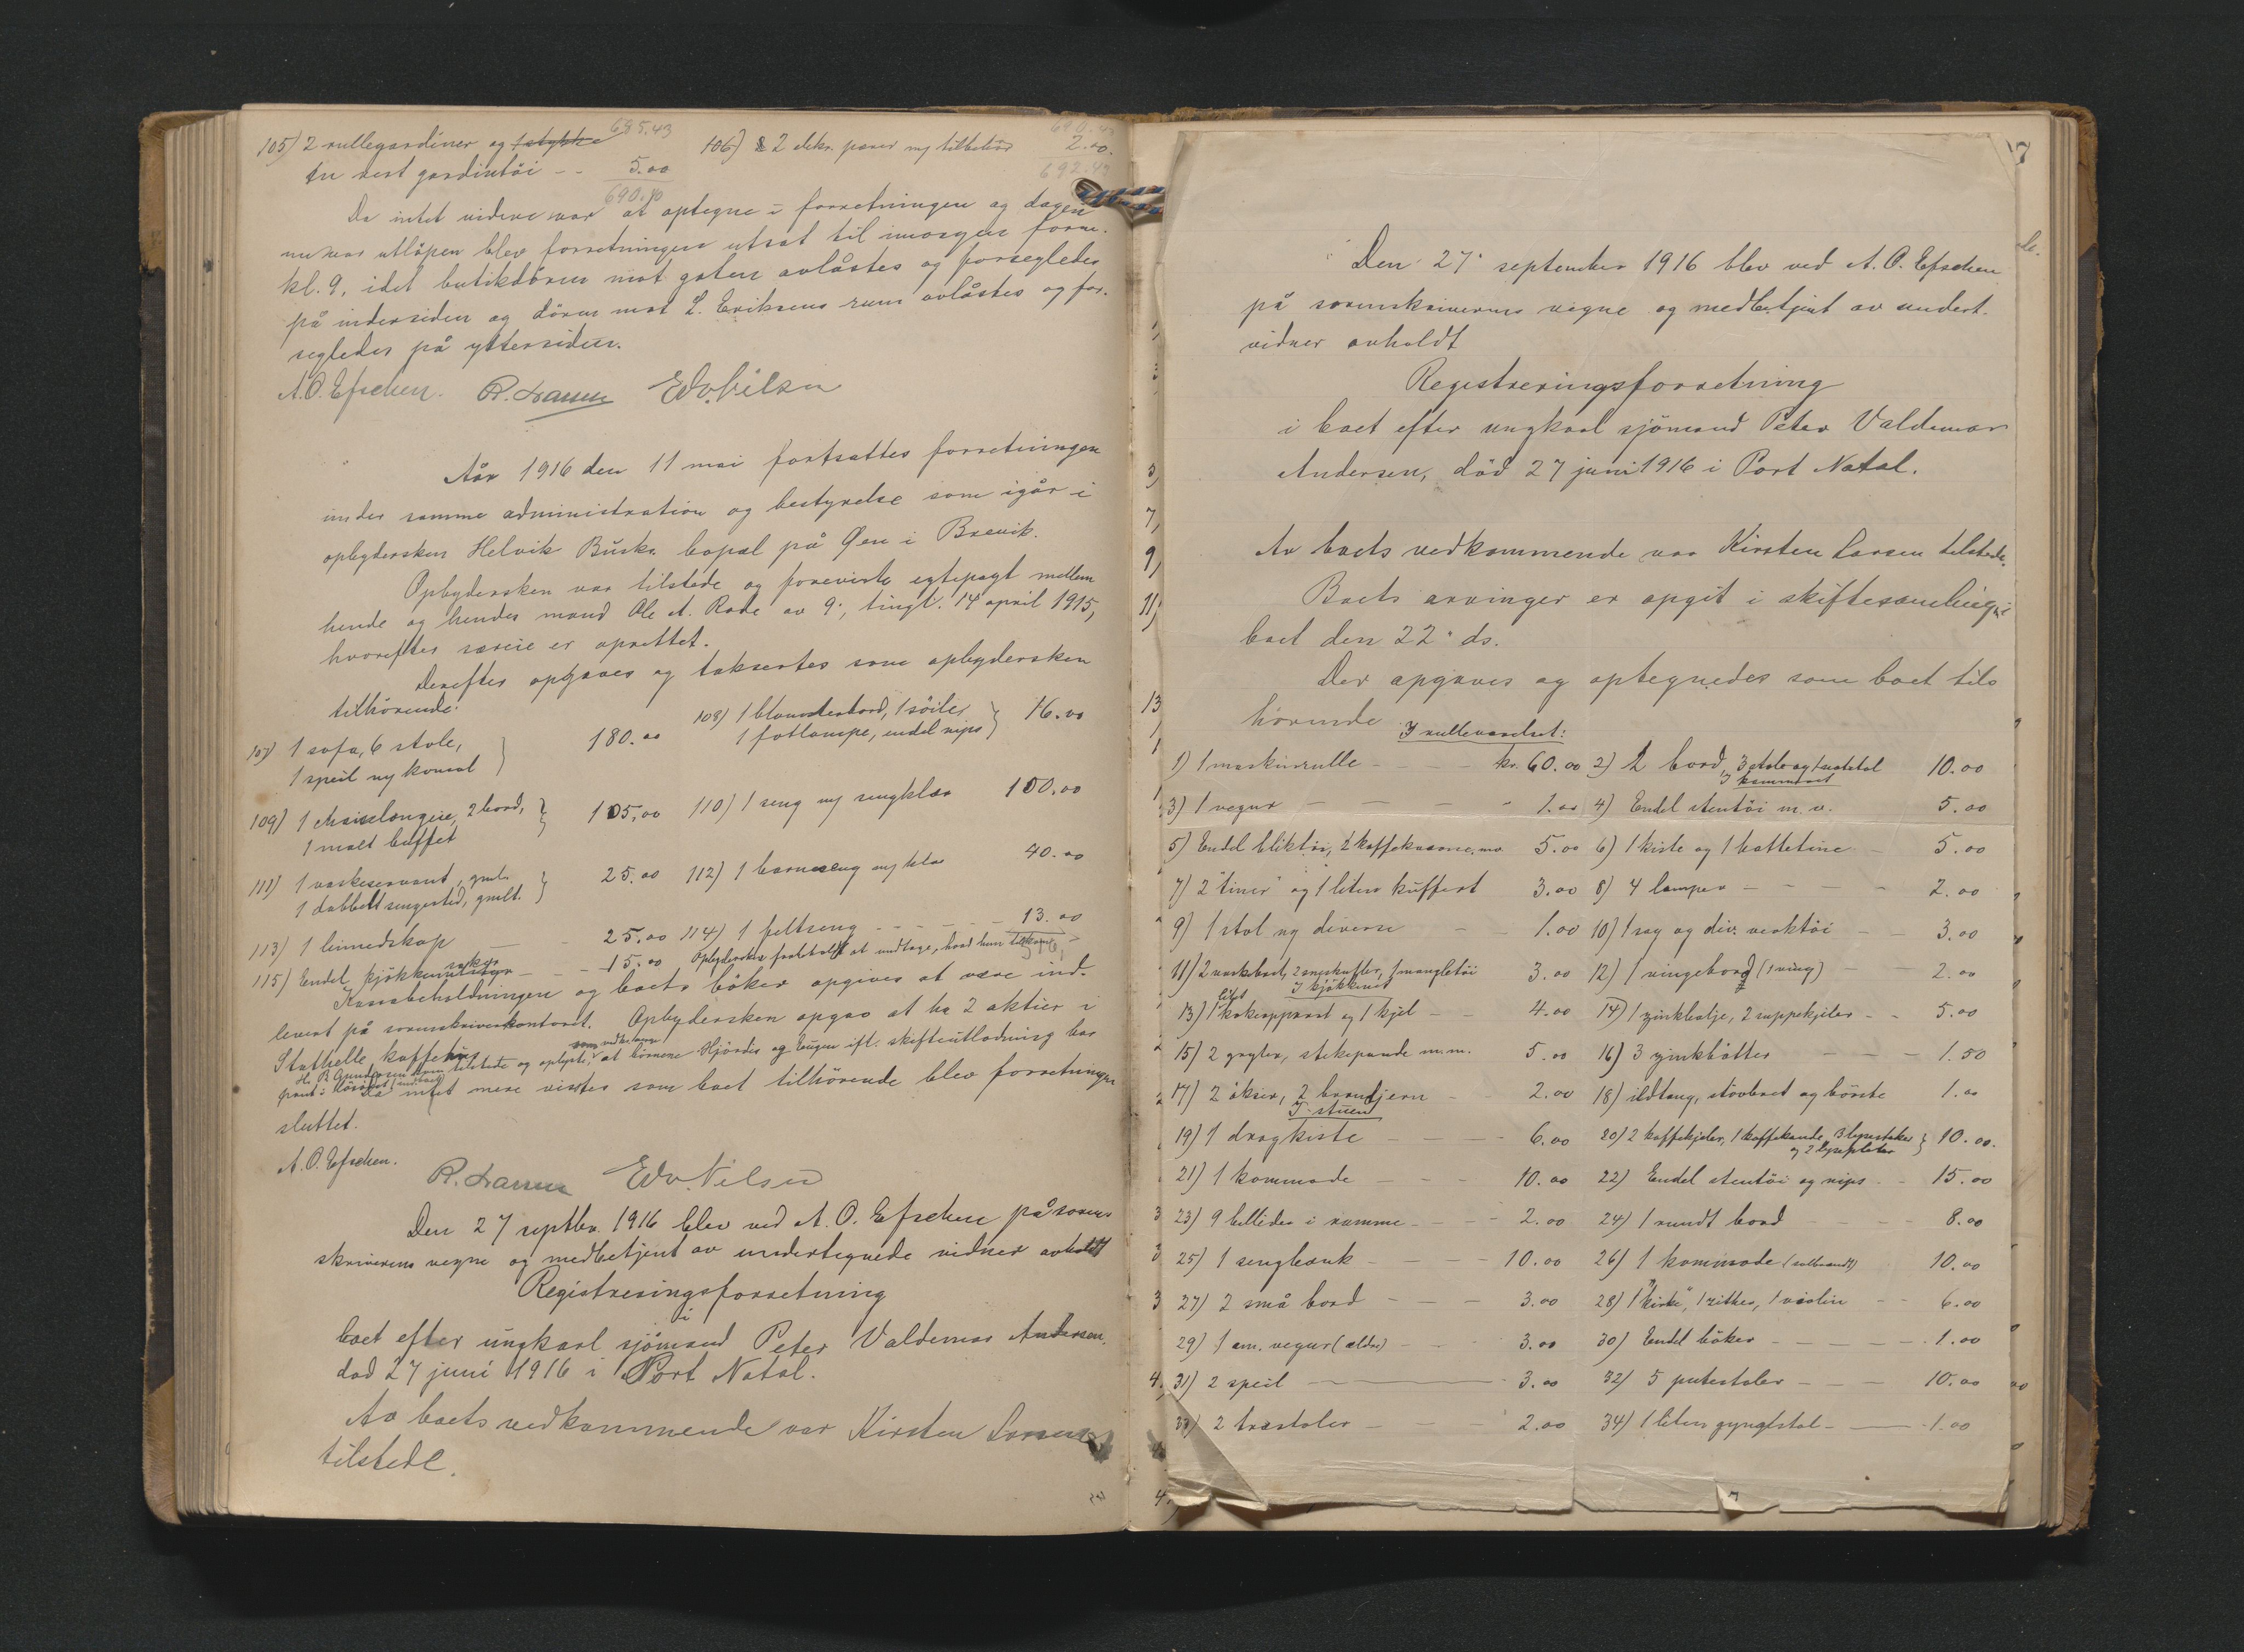 685.43
690.43
105) 2 rullegardiner og 1 stykke
106) 2 elektr. pærer m/ tilbehör 2.00.
en rest gardintöi -- 5.00
692.43
690.
Da intet videre var at optegne i forretningen og dagen
nu var utlöpen blev forretningen utsat til imorgen form.
kl. 9, idet butikdören mot gaten avlåstes og forsegledes
på indersiden og dören mot L. Eriksens rum avlåstes og for-
segledes på yttersiden.
A.O. Efschen. R. Larsen Edv. Nilsen
Aår 1916 den 11 mai fortsattes forretningen
under samme administration og bestyrelse som igår i
opbydersken Helvik Buska bopæl på Øen i Brevik.
Opbydersken var tilstede og foreviste egtepagt mellem
hende og hendes mand Ole A. Rode av 9., tingl. 14 april 1915,
hvorefter særeie er oprettet.
Derefter opgaves og takseртes som opbydersken
tilhörende:
107) 1 sofa, 6 stole,
1 speil m/ konsol } 180.00
108) 1 blomsterbord, 1 söile,
1 fotlampe, endel nips } 16.00
109) 1 chaiselongue, 2 bord,
1 malt buffet } 105.00
110) 1 seng m/ sengklær 100.00
111) 1 vaskeservant, gml.
1 dobbelt sengested, gmlt. } 25.00
112) 1 barneseng m/ klær 40.00
113) 1 linnedskap - - 25.00
114) 1 feltseng - - - - 13.00
115) Endel kjökkensaker - - 15.00
Opbydersken forbeholdt at undtage, hvad hun tilkom.
Kassabeholdningen og boets böker opgives at være ind-
levert på sorenskriverkontoret. Opbydersken opgav at ha 2 aktier i
Stathelle kaffe
tilstede og oplyste, at börnene Hjördis og Eugen ifl. skifteutlodning har
pant i
Da intet mere vistes som boet tilhörende blev forretningen
sluttet.
A.O. Efschen.
R. Larsen Edv. Nilsen
Den 27 septbr. 1916 blev ved A. O. Efschen på soren-
skriverens vegne og medbetjent av undertegnede vidner avholdt
Registreringsforretning
i
boet efter ungkarl sjömand Peter Valdemar Andersen,
död 27 juni 1916 i Port Natal.
Av boets vedkommende var Kirsten Larsen
tilstede.
7
Den 27. september 1916 blev ved A. O. Efschen
på sorenskriverens vegne og medbetjent av undert.
vidner avholdt
Registreringsforretning
i boet efter ungkarl sjömand Peter Valdemar
Andersen, död 27 juni 1916 i Port Natal.
Av boets vedkommende var Kirsten Larsen tilstede.
Boets arvinger er opgit i skiftesamling i
boet den 22. ds.
Der opgaves og optegnedes som boet til-
hörende
I rulleværelset:
1) 1 maskinrulle - - - kr. 60.00
2) 2 bord, 3 stole og 10.00
I kammeret
3) 1 vegur - - - - 1.00
4) Endel stentöi m.v. 5.00
5) Endel bliktöi, 2 kaffekværne m.v. 5.00
6) 1 kiste og 1 hattetine 5.00
7) "2 tiner" og 1 liten kuffert 3.00
8) 4 lamper - - - - 2.00
9) 1 stol og diverse - - 1.00
10) 1 sag og div. verktöi - - 3.00
11) 2 vaskebret, 2 sneskuffler, 1 mangletöi 3.00
12) 1 vingebord (1 ving) - - 2.00
I kjökkenet
13) 1 litet kokeapparat og 1 kjel - - 4.00
14) 1 zinkbalje, 2 suppekjeler - - 5.00
15) 2 gryter, stekepande m.m. 5.00
16) 3 zinkbötter - - - 1.50
17) 2 ökser, 2 brandjern - - 2.00
18) ildtang, stövbret og börste 1.00
I stuen
19) 1 dragkiste - - - - 6.00
20) 2 kaffekjeler, 1 kaffekande, 3 lysestaker
og 2 lyseplater } 10.00.
21) 1 kommode - - - 10.00
22) Endel stentöi og nips - - 15.00
23) 9 billeder i ramme - - - - 2.00
24) 1 rundt bord - - - - 8.00
25) 1 sengbænk - - - - 10.00
26) 1 kommode 10.00
27) 2 små bord - - - 3.00
28) 1 "kirke", 1 zither, 1 violin - - 6.00
29) 1 am. vegur (ældre) - - 3.00
30) Endel böker - - - 1.00
31) 2 speil - 3.00
32) 5 putestoler - - - 10.00
33) 2 træstoler - - - 2.00
34) 1 liten gyngestol - - 1.00